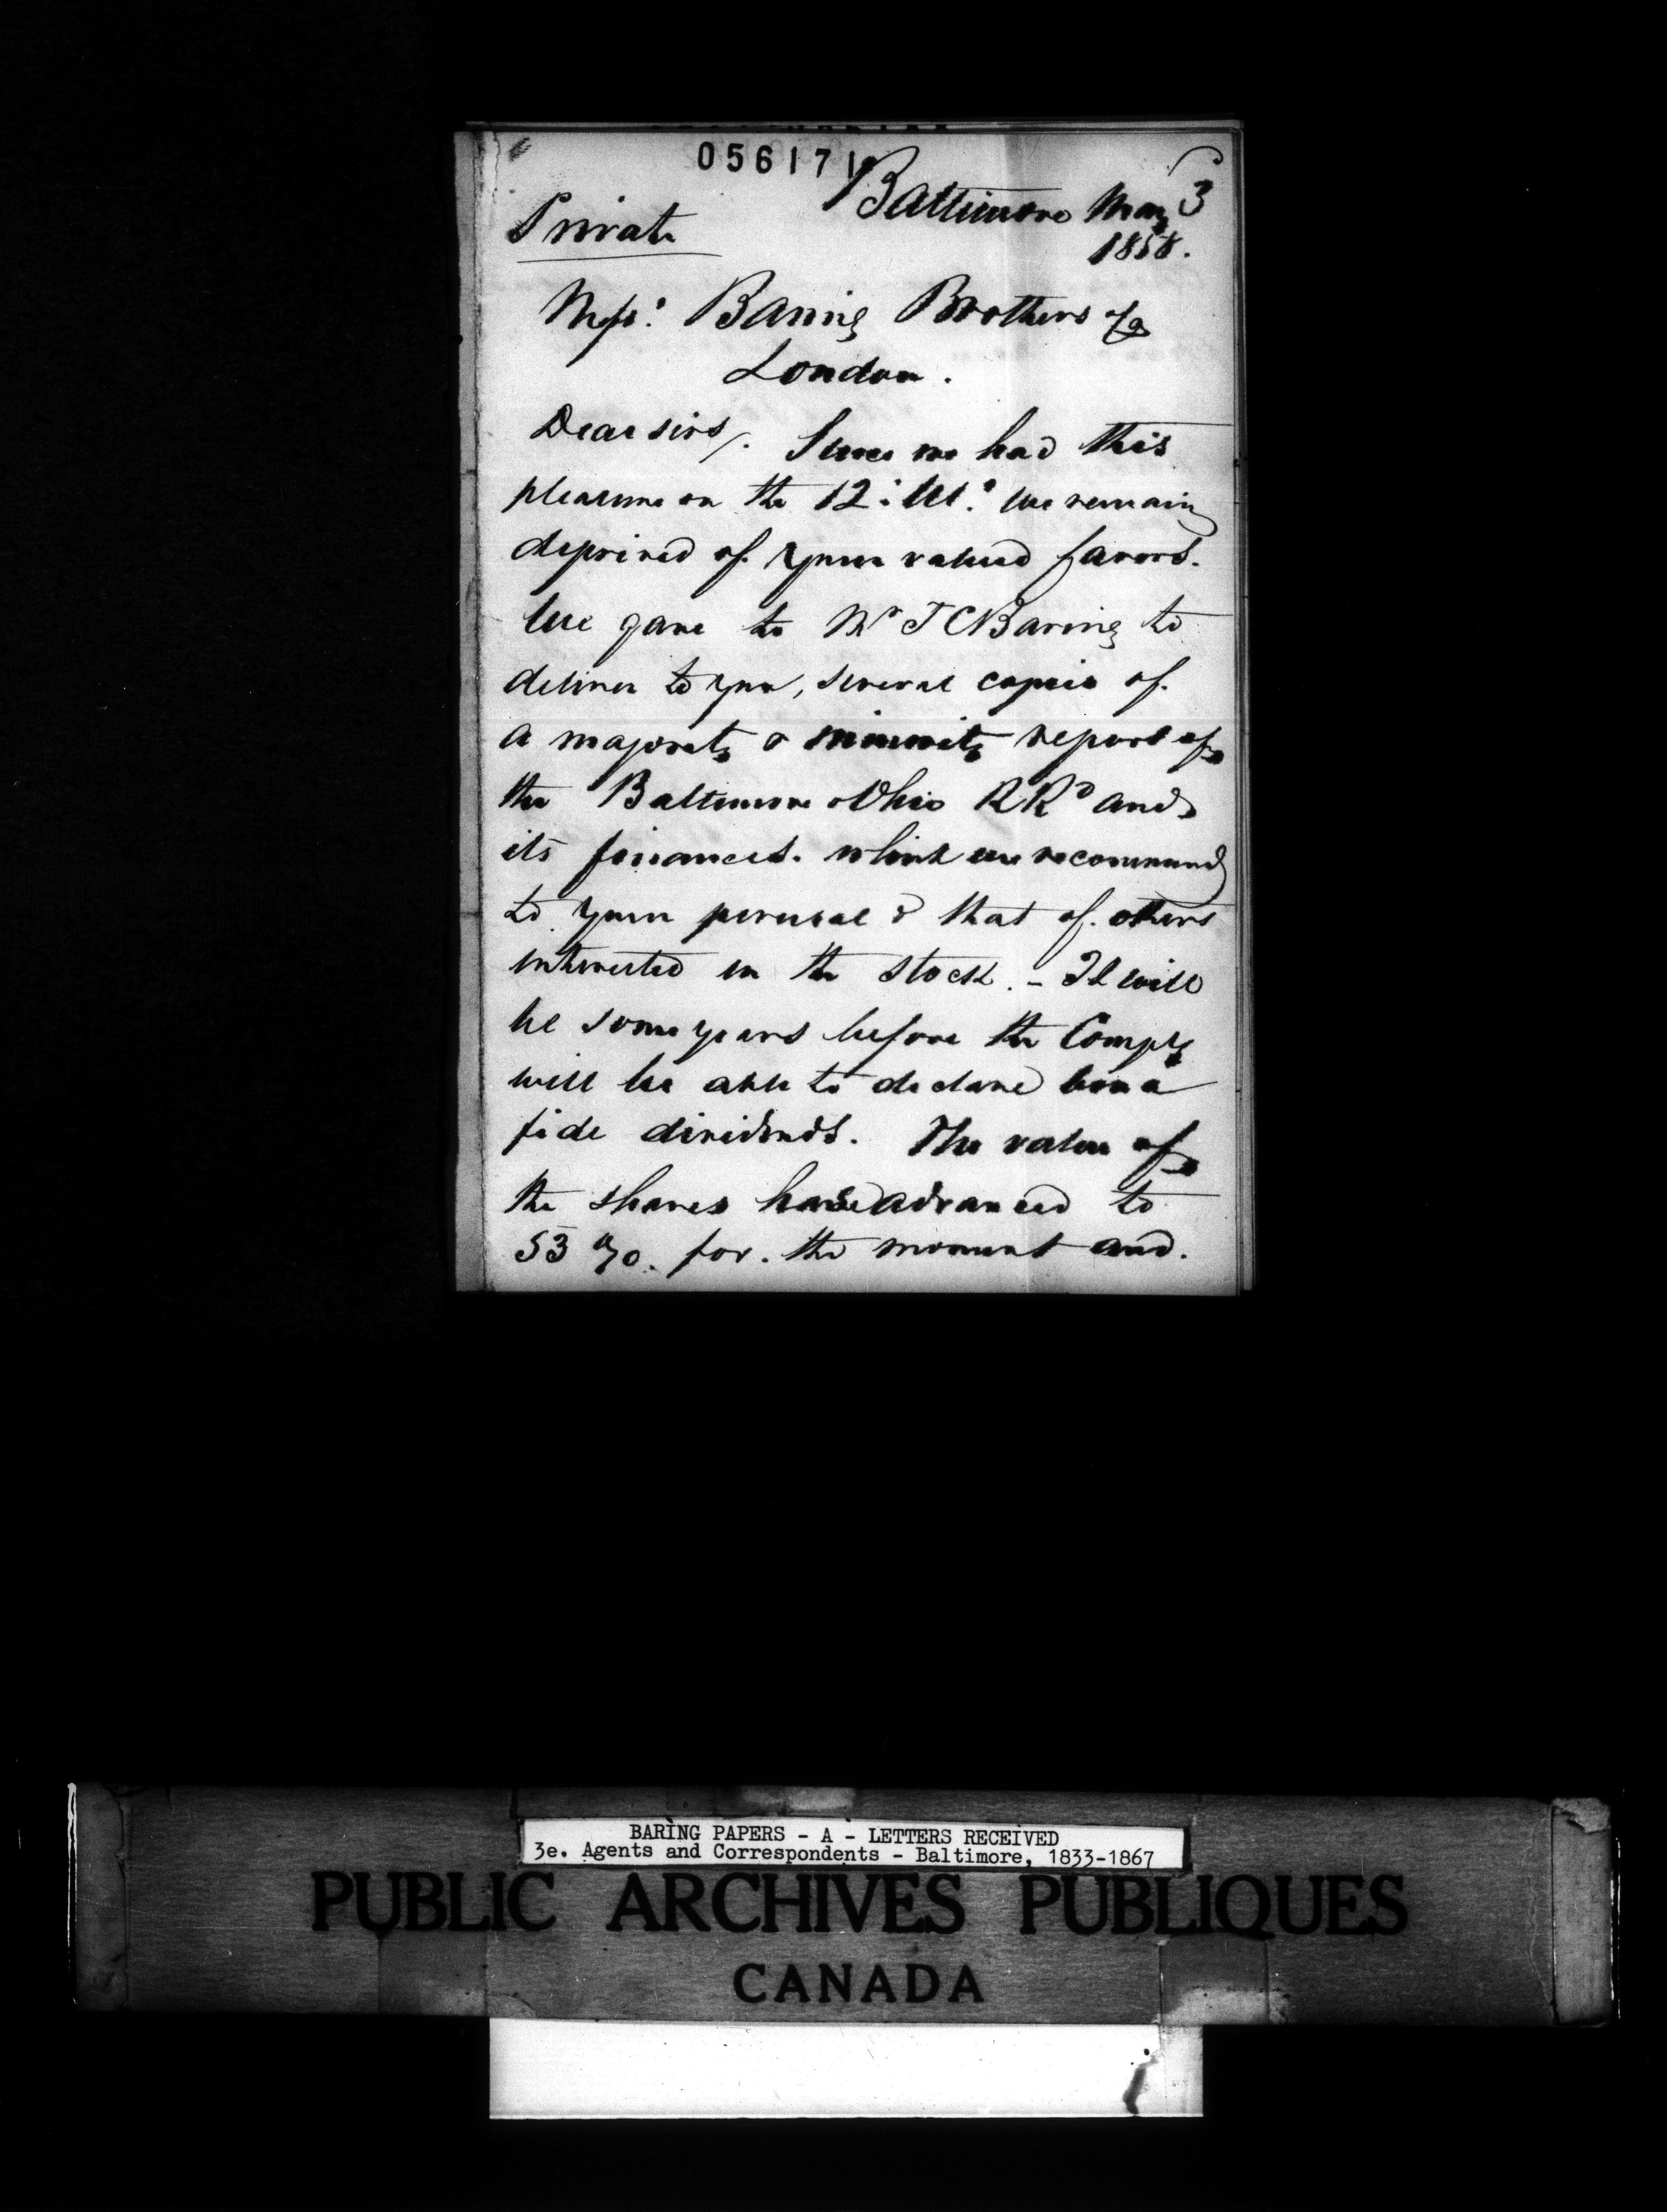 056171
Baltimore May 3
1858.
Private
Messrs. Baring Brothers & Co
London.
Dear sirs/. Since we had this
pleasure on the 12: Ult.o we remain
deprived of your valued favors.
We gave to Mr T C Baring to
deliver to you, several copies of
a majority & minority report of
the Baltimore & Ohio RRd and
its finances. which we recommend
to your perusal & that of others
interested in the stock. - It will
be some years before the Compy
will be able to declare bona
fide dividends. The value of
the shares have advanced to
53 %. for. the moment and.
BARING PAPERS - A - LETTERS RECEIVED
3e. Agents and Correspondents - Baltimore, 1833-1867
PUBLIC ARCHIVES PUBLIQUES
CANADA